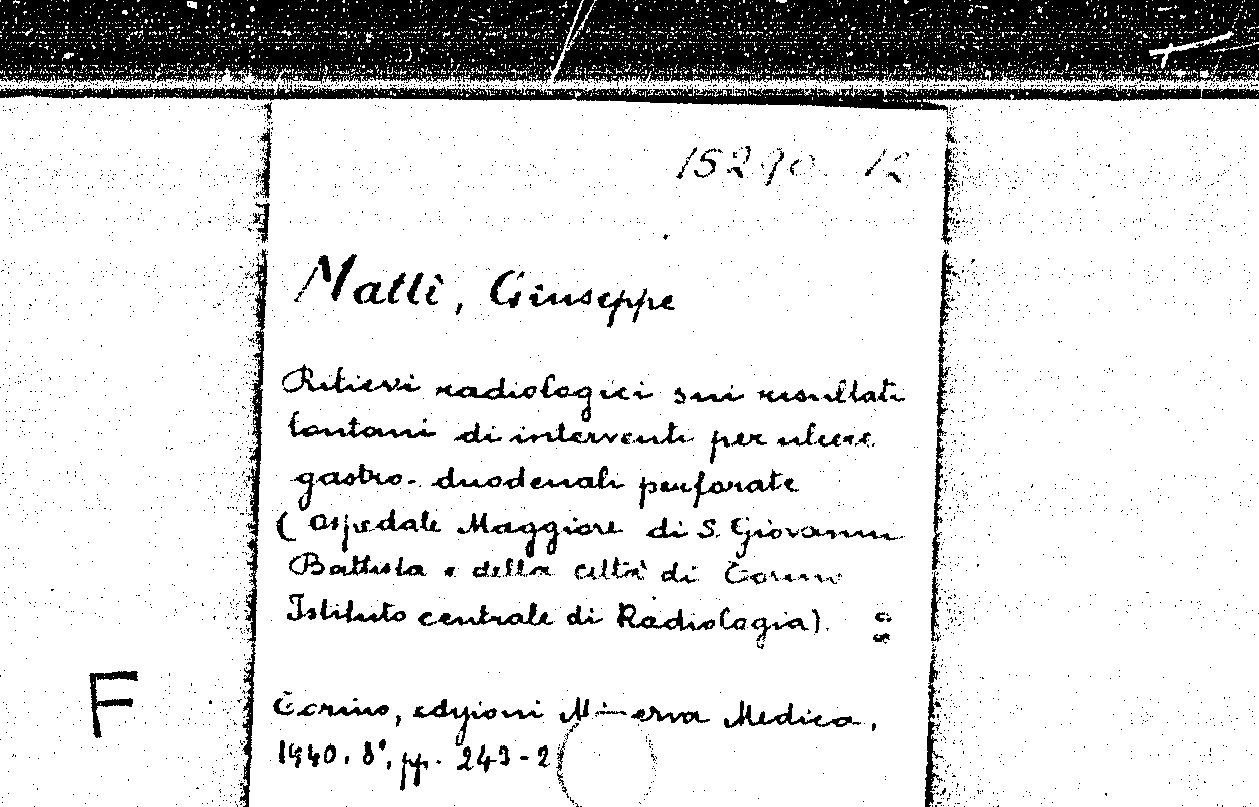 15290 12
Matli, Giuseppe
Rilievi radiologici sui risultati
lontani di interventi per ulcere
gastro-duodenali perforate
(Ospedale Maggiore di S. Giovanni
Battista e della città di Torino
Istituto centrale di Radiologia).
Torino, edizioni Minerva Medica,
1940. 8°, pp. 243-2
F